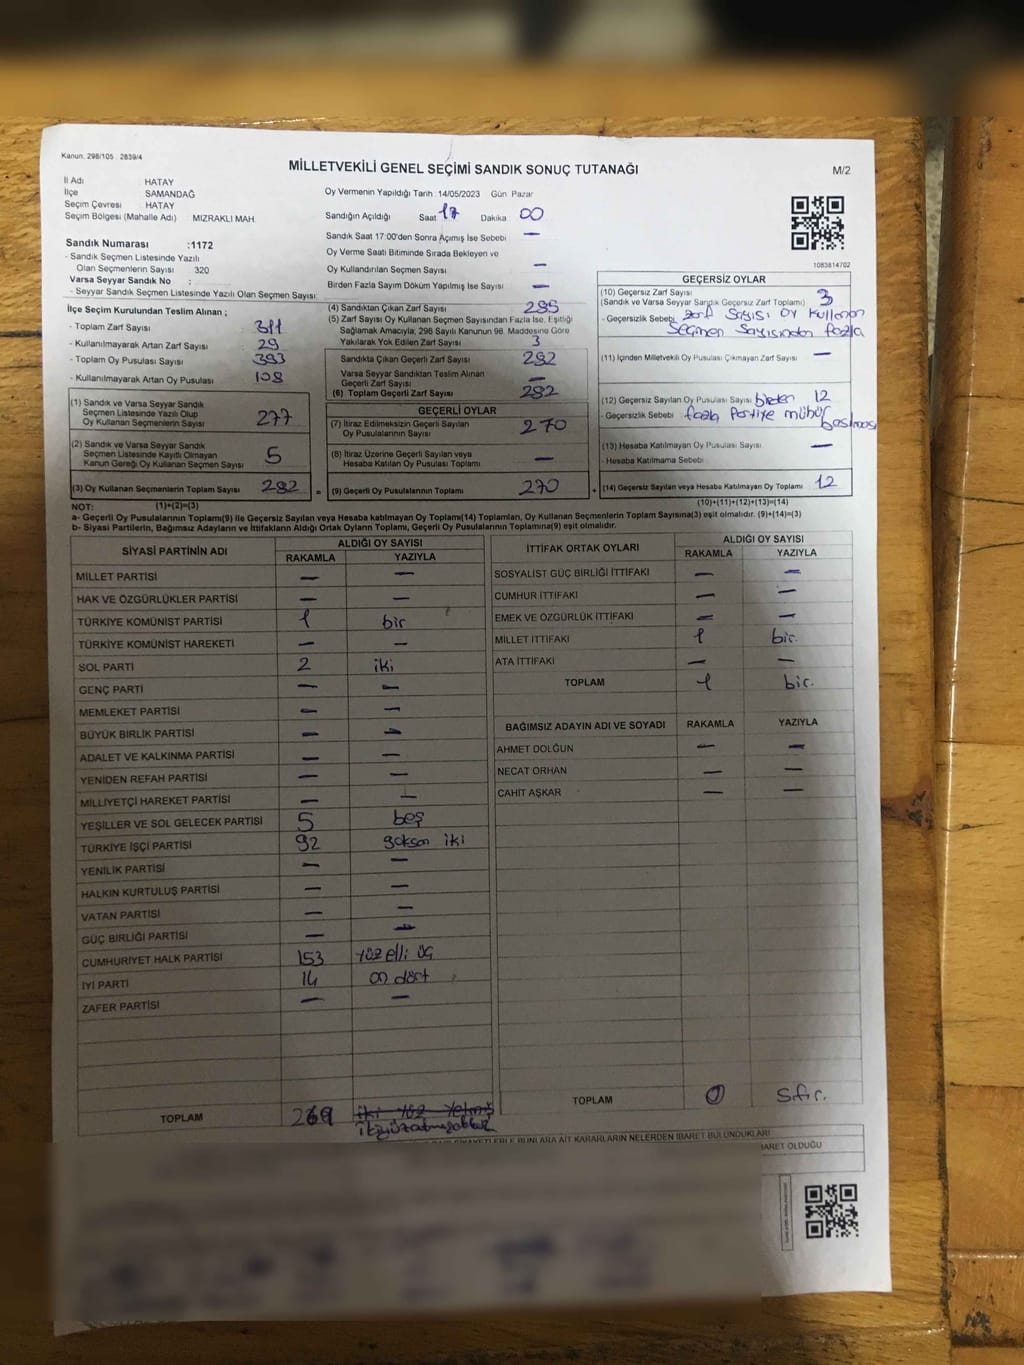 Kanun: 298/105 2839/4
MİLLETVEKİLİ GENEL SEÇİMİ SANDIK SONUÇ TUTANAĞI
M/2
İl Adı HATAY
İlçe SAMANDAĞ
Seçim Çevresi HATAY
Seçim Bölgesi (Mahalle Adı) MIZRAKLI MAH.
Sandık Numarası :1172
- Sandık Seçmen Listesinde Yazılı
Olan Seçmenlerin Sayısı 320
Varsa Seyyar Sandık No :
- Seyyar Sandık Seçmen Listesinde Yazılı Olan Seçmen Sayısı:
Oy Vermenin Yapıldığı Tarih : 14/05/2023 Gün Pazar
Sandığın Açıldığı Saat 17 Dakika 00
Sandık Saat 17:00'den Sonra Açılmış İse Sebebi —
Oy Verme Saati Bitiminde Sırada Bekleyen ve
Oy Kullandırılan Seçmen Sayısı —
Birden Fazla Sayım Döküm Yapılmış İse Sayısı —
1083814702
İlçe Seçim Kurulundan Teslim Alınan ;
- Toplam Zarf Sayısı 311
- Kullanılmayarak Artan Zarf Sayısı 29
- Toplam Oy Pusulası Sayısı 393
- Kullanılmayarak Artan Oy Pusulası 108
(1) Sandık ve Varsa Seyyar Sandık
Seçmen Listesinde Yazılı Olup
Oy Kullanan Seçmenlerin Sayısı 277
(2) Sandık ve Varsa Seyyar Sandık
Seçmen Listesinde Kayıtlı Olmayan
Kanun Gereği Oy Kullanan Seçmen Sayısı 5
(3) Oy Kullanan Seçmenlerin Toplam Sayısı 282
(4) Sandıktan Çıkan Zarf Sayısı 285
(5) Zarf Sayısı Oy Kullanan Seçmen Sayısından Fazla İse, Eşitliği
Sağlamak Amacıyla; 298 Sayılı Kanunun 98. Maddesine Göre
Yakılarak Yok Edilen Zarf Sayısı 3
Sandıkta Çıkan Geçerli Zarf Sayısı 282
Varsa Seyyar Sandıktan Teslim Alınan
Geçerli Zarf Sayısı —
(6) Toplam Geçerli Zarf Sayısı 282
GEÇERLİ OYLAR
(7) İtiraz Edilmeksizin Geçerli Sayılan
Oy Pusulalarının Sayısı 270
(8) İtiraz Üzerine Geçerli Sayılan veya
Hesaba Katılan Oy Pusulası Toplamı —
= (9) Geçerli Oy Pusulalarının Toplamı 270
GEÇERSİZ OYLAR
(10) Geçersiz Zarf Sayısı
(Sandık ve Varsa Seyyar Sandık Geçersiz Zarf Toplamı) 3
- Geçersizlik Sebebi: zarf sayısı oy kullanan
seçmen sayısından fazla
(11) İçinden Milletvekili Oy Pusulası Çıkmayan Zarf Sayısı —
(12) Geçersiz Sayılan Oy Pusulası Sayısı birden 12
- Geçersizlik Sebebi fazla partiye mühür
basılması
(13) Hesaba Katılmayan Oy Pusulası Sayısı —
- Hesaba Katılmama Sebebi
+ (14) Geçersiz Sayılan veya Hesaba Katılmayan Oy Toplamı 12
NOT: (1)+(2)=(3) (10)+(11)+(12)+(13)=(14)
a- Geçerli Oy Pusulalarının Toplamı(9) ile Geçersiz Sayılan veya Hesaba katılmayan Oy Toplamı(14) Toplamları, Oy Kullanan Seçmenlerin Toplam Sayısına(3) eşit olmalıdır. (9)+(14)=(3)
b- Siyasi Partilerin, Bağımsız Adayların ve İttifakların Aldığı Ortak Oyların Toplamı, Geçerli Oy Pusulalarının Toplamına(9) eşit olmalıdır.
SİYASİ PARTİNİN ADI ALDIĞI OY SAYISI
RAKAMLA YAZIYLA
MİLLET PARTİSİ — —
HAK VE ÖZGÜRLÜKLER PARTİSİ — —
TÜRKİYE KOMÜNİST PARTİSİ 1 bir
TÜRKİYE KOMÜNİST HAREKETİ — —
SOL PARTİ 2 iki
GENÇ PARTİ — —
MEMLEKET PARTİSİ — —
BÜYÜK BİRLİK PARTİSİ — —
ADALET VE KALKINMA PARTİSİ — —
YENİDEN REFAH PARTİSİ — —
MİLLİYETÇİ HAREKET PARTİSİ — —
YEŞİLLER VE SOL GELECEK PARTİSİ 5 beş
TÜRKİYE İŞÇİ PARTİSİ 92 doksan iki
YENİLİK PARTİSİ — —
HALKIN KURTULUŞ PARTİSİ — —
VATAN PARTİSİ — —
GÜÇ BİRLİĞİ PARTİSİ — —
CUMHURİYET HALK PARTİSİ 153 yüz elli üç
İYİ PARTİ 14 on dört
ZAFER PARTİSİ — —
TOPLAM 269 iki yüz yetmiş
İTTİFAK ORTAK OYLARI ALDIĞI OY SAYISI
RAKAMLA YAZIYLA
SOSYALİST GÜÇ BİRLİĞİ İTTİFAKI — —
CUMHUR İTTİFAKI — —
EMEK VE ÖZGÜRLÜK İTTİFAKI — —
MİLLET İTTİFAKI 1 bir.
ATA İTTİFAKI — —
TOPLAM 1 bir.
BAĞIMSIZ ADAYIN ADI VE SOYADI RAKAMLA YAZIYLA
AHMET DOLĞUN — —
NECAT ORHAN — —
CAHİT AŞKAR — —
TOPLAM 0 sıfır.
BUNLARA AİT KARARLARIN NELERDEN İBARET BULUNDUKLARI
OLDUĞU